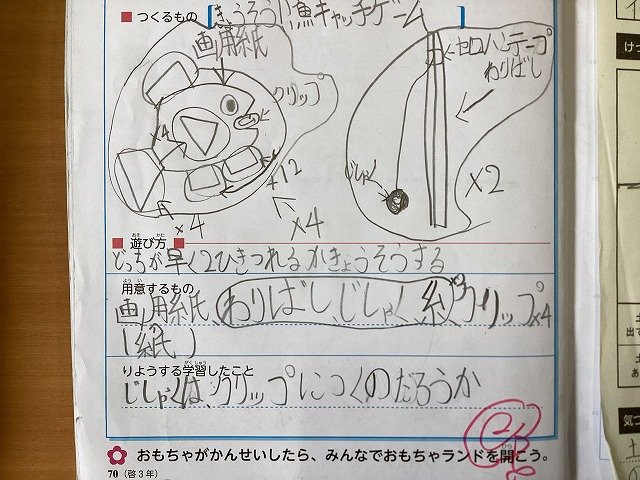 ■つくるもの [きょうそう!魚キャッチゲーム]
画用紙
クリップ
×4
×12
×4
×4
セロハンテープ
わりばし
じしゃく
×2
■遊び方■
あそ かた
どっちが早く2ひきつれるかきょうそうする
用意するもの
ようい
画用紙、わりばし、じしゃく、糸、クリップ×4
(紙)
りようする学習したこと
がくしゅう
じしゃくは、クリップにつくのだろうか
おもちゃがかんせいしたら、みんなでおもちゃランドを開こう。
70(啓3年)